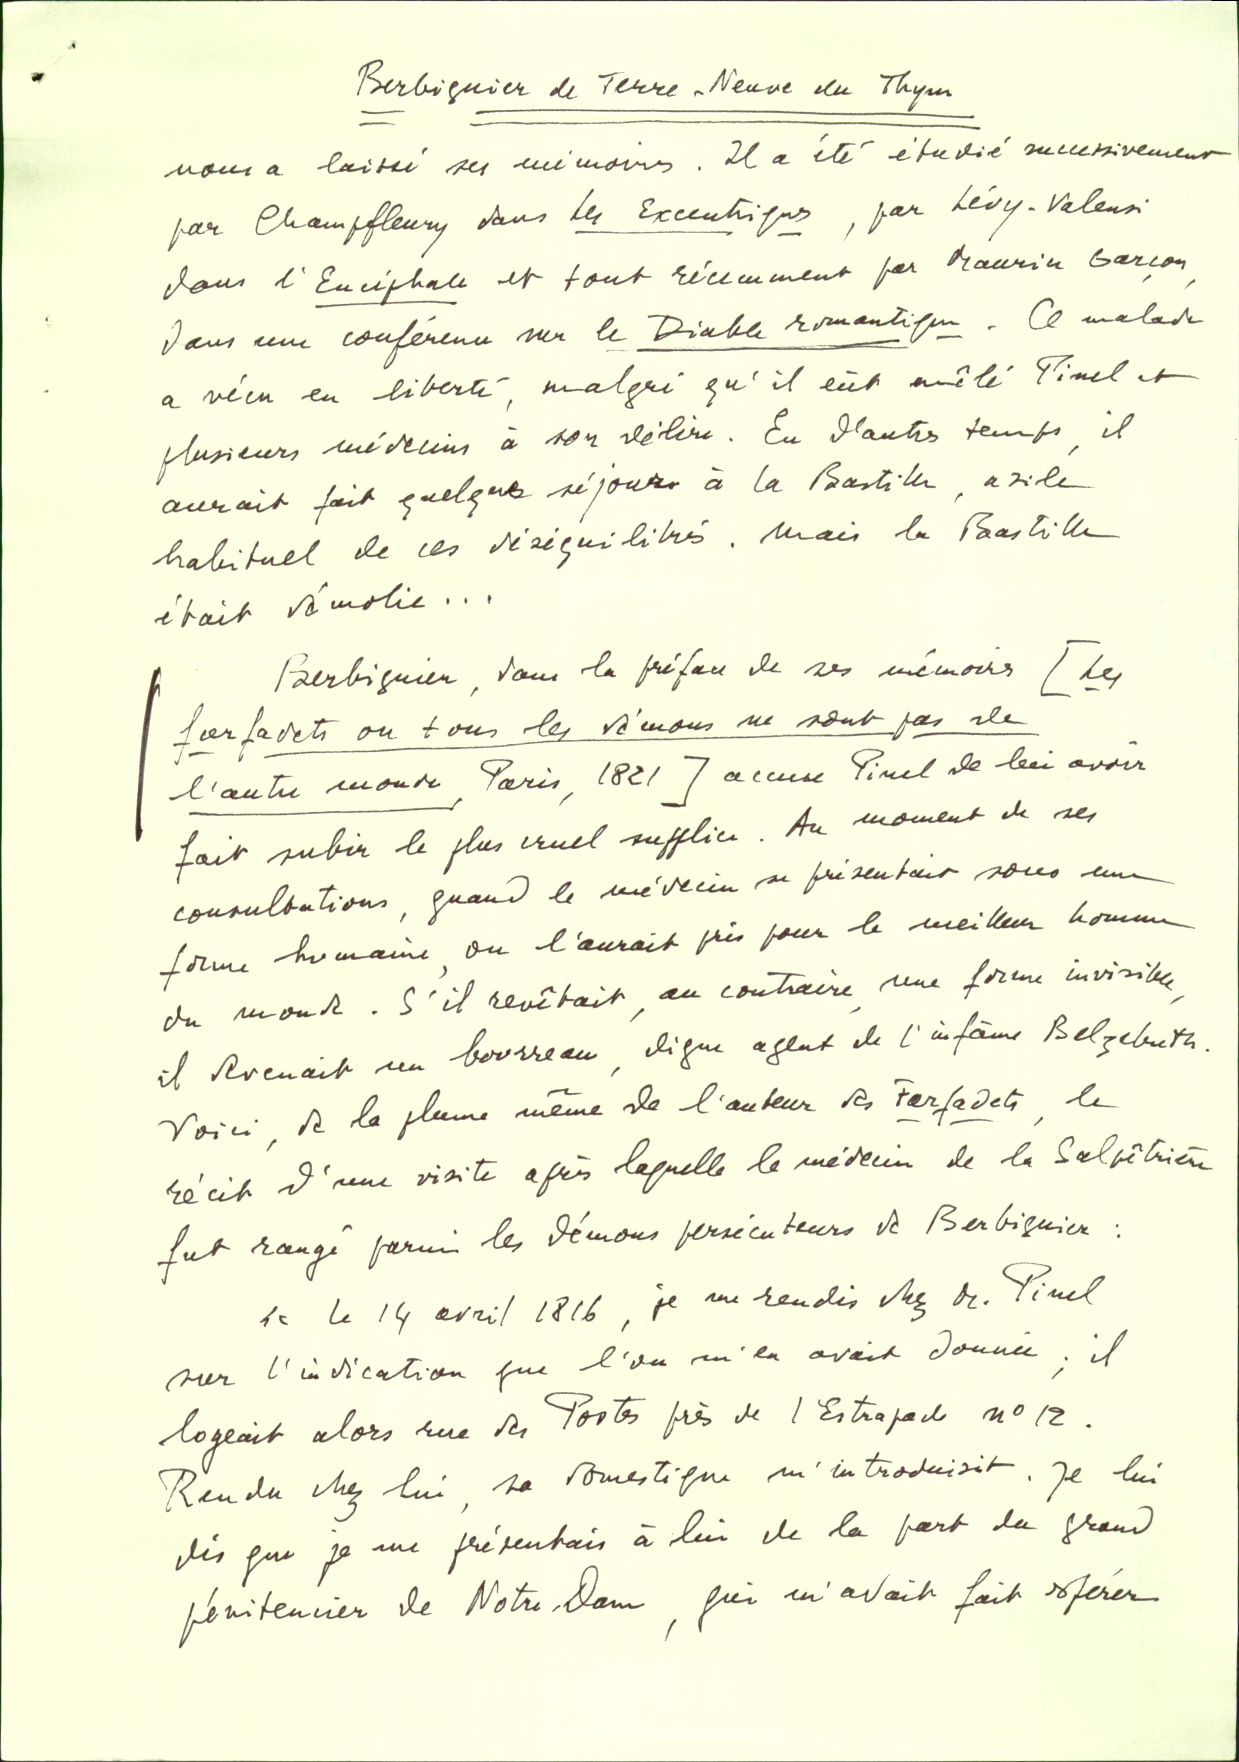 Berbiguier de Terre-Neuve du Thym
nous a laissé ses mémoires. Il a été étudié successivement
par Champfleury dans Les Excentriques, par Lévy-Valensi
dans l'Encéphale et tout récemment par Maurice Garçon,
dans une conférence sur le Diable romantique. Ce malade
a vécu en liberté, malgré qu'il eût mêlé Pinel et
plusieurs médecins à son délire. En d'autres temps, il
aurait fait quelques séjours à la Bastille, asile
habituel de ces déséquilibrés. Mais la Bastille
était démolie...
Berbiguier, dans la préface de ses mémoires [Les
farfadets ou tous les démons ne sont pas de
l'autre monde, Paris, 1821] accuse Pinel de lui avoir
fait subir le plus cruel supplice. Au moment de ses
consultations, quand le médecin se présentait sous une
forme humaine, on l'aurait pris pour le meilleur homme
du monde. S'il revêtait, au contraire, une forme invisible,
il devenait un bourreau, digne agent de l'infâme Belzebuth.
Voici, de la plume même de l'auteur des Farfadets, le
récit d'une visite après laquelle le médecin de la Salpêtrière
fut rangé parmi les démons persécuteurs de Berbiguier :
« Le 14 avril 1816, je me rendis chez Dr. Pinel
sur l'indication que l'on m'en avait donnée ; il
logeait alors rue des Postes près de l'Estrapade n° 12.
Rendu chez lui, sa domestique m'introduisit. Je lui
dis que je me présentais à lui de la part du grand
pénitencier de Notre-Dame, qui m'avait fait espérer